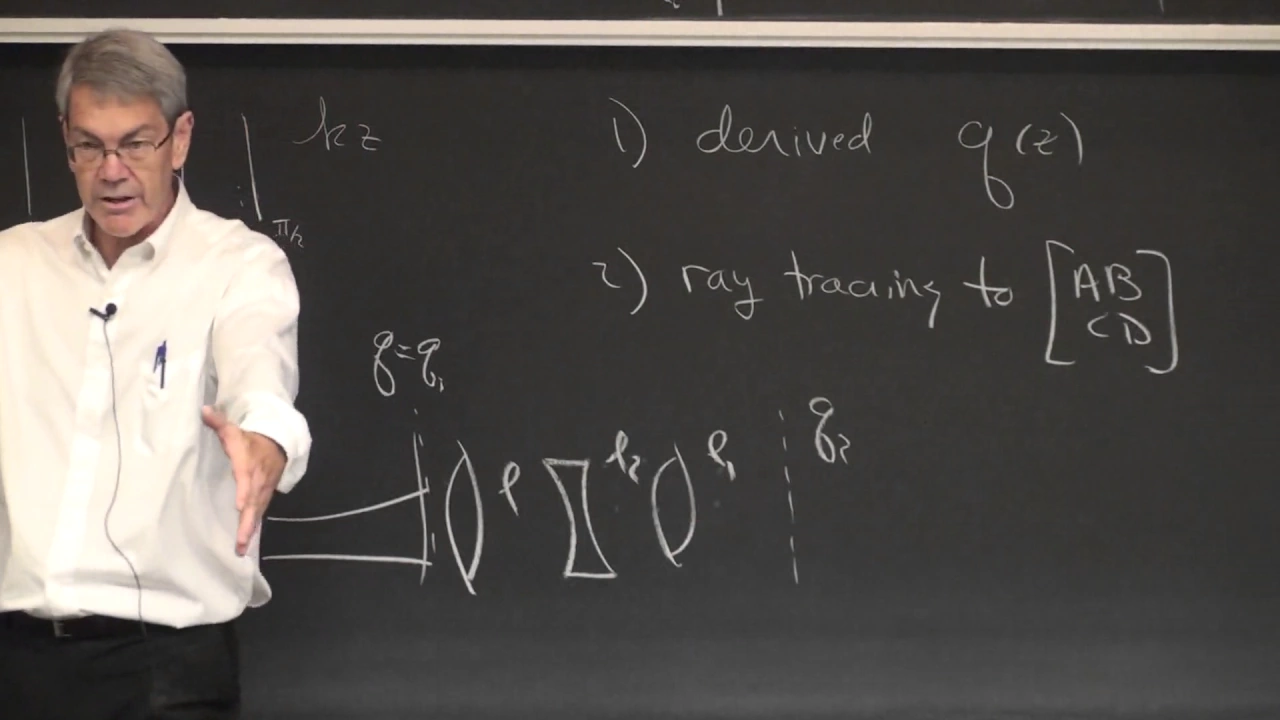 kz
π/2
1) derived q(z)
2) ray tracing to [AB
CD]
q=q₁
f f₂ f₁ q₂